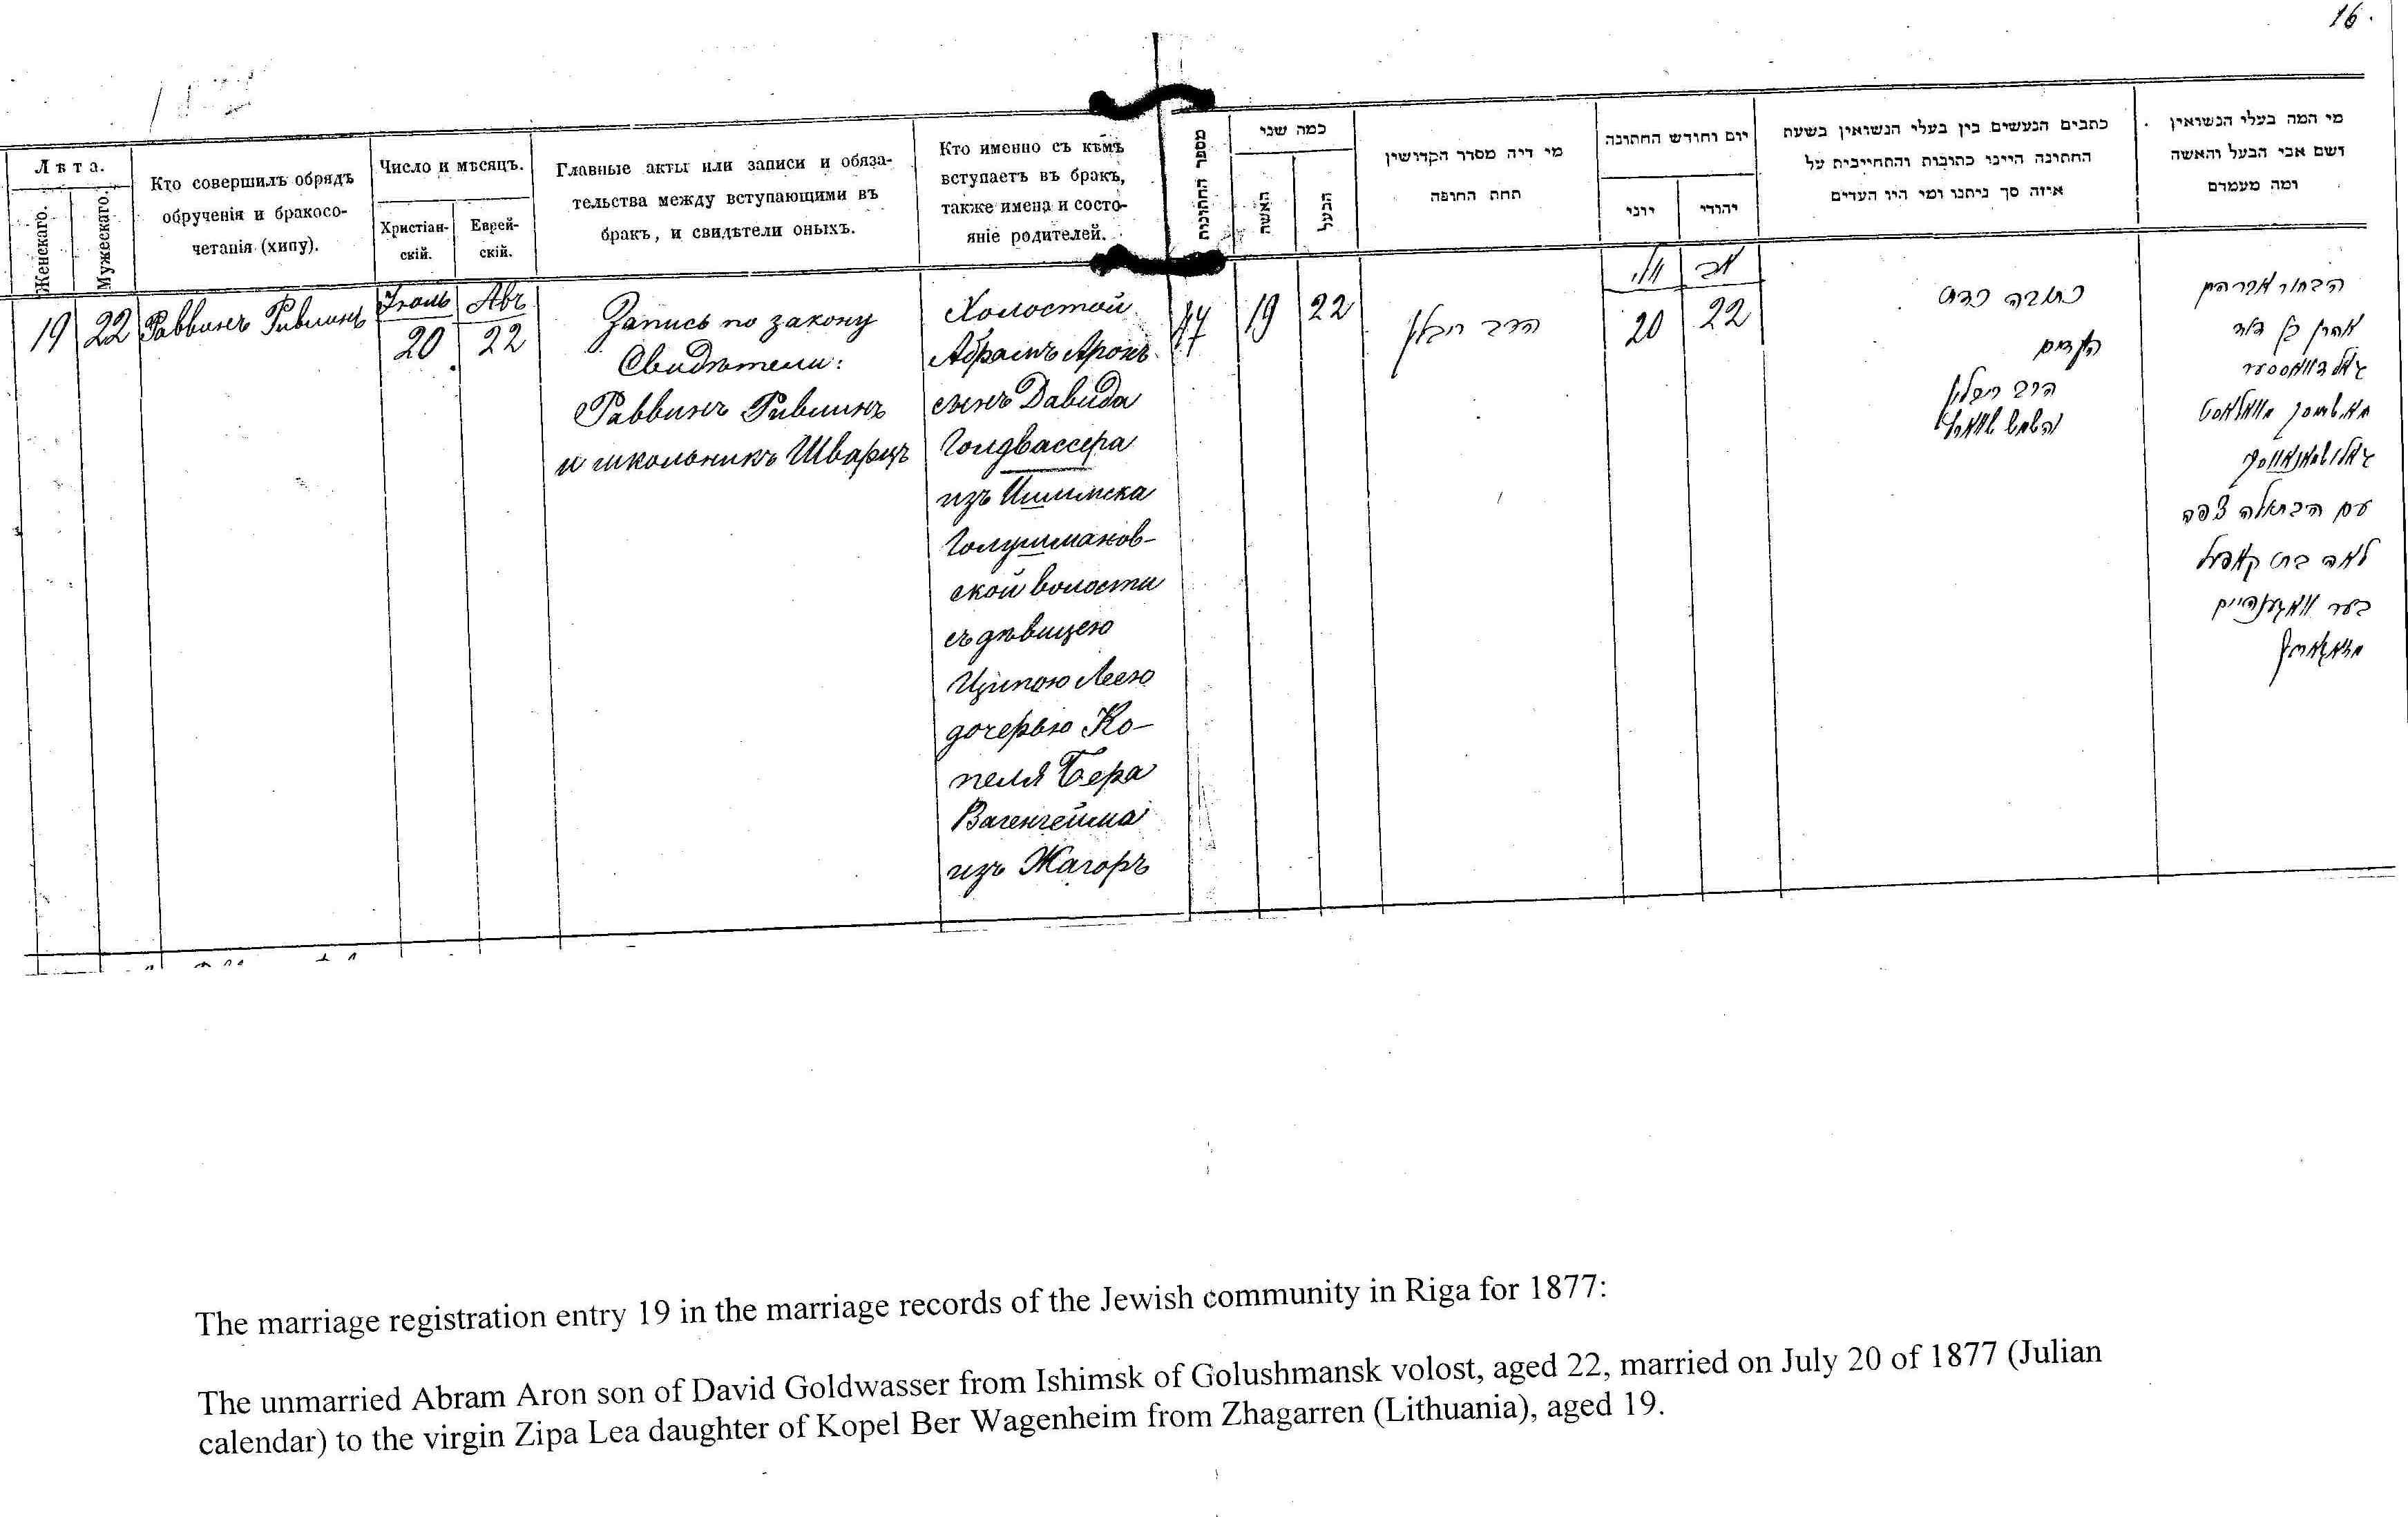 16.
Лѣта.
Женскаго.
Мужескаго.
Кто совершилъ обрядъ
обрученія и бракосо-
четанія (хипу).
Число и мѣсяцъ.
Христіан-
скій.
Еврей-
скій.
Главные акты или записи и обяза-
тельства между вступающими въ
бракъ, и свидѣтели оныхъ.
Кто именно съ кѣмъ
вступаетъ въ бракъ,
также имена и состо-
яніе родителей.
מספר החתונות
כמה שני
האשה
הבעל
מי היה מסדר הקדושין
תחת החופה
יום וחודש החתונה
יוני
יהודי
כתבים הנעשים בין בעלי הנשואין בשעת
החתונה היינו כתובות והתחייבות על
איזה סך ניתנו ומי היו העדים
מי המה בעלי הנשואין
ושם אבי הבעל והאשה
ומה מעמדם
19
22
Раввинъ Ривлинъ
Іюль
20
Авъ
22
Запись по закону
Свидѣтели:
Раввинъ Ривлинъ
и школьникъ Шварцъ
Холостой
Абрамъ Аронъ
сынъ Давида
Голдвассера
изъ Ишимска
Голушманов-
ской волости
съ дѣвицею
Ципою Леею
дочерью Ко-
пеля Бера
Вагенгейма
изъ Жагоръ
47
19
22
הרב ריבלין
יולי
20
אב
22
כתובה כדת
העדים
הרב ריבלין
הבחור אברהם
אהרן בן דוד
גאלדוואססער
עם הבתולה צפה
לאה בת קאפעל
בער וואגענהיים
The marriage registration entry 19 in the marriage records of the Jewish community in Riga for 1877:
The unmarried Abram Aron son of David Goldwasser from Ishimsk of Golushmansk volost, aged 22, married on July 20 of 1877 (Julian
calendar) to the virgin Zipa Lea daughter of Kopel Ber Wagenheim from Zhagarren (Lithuania), aged 19.